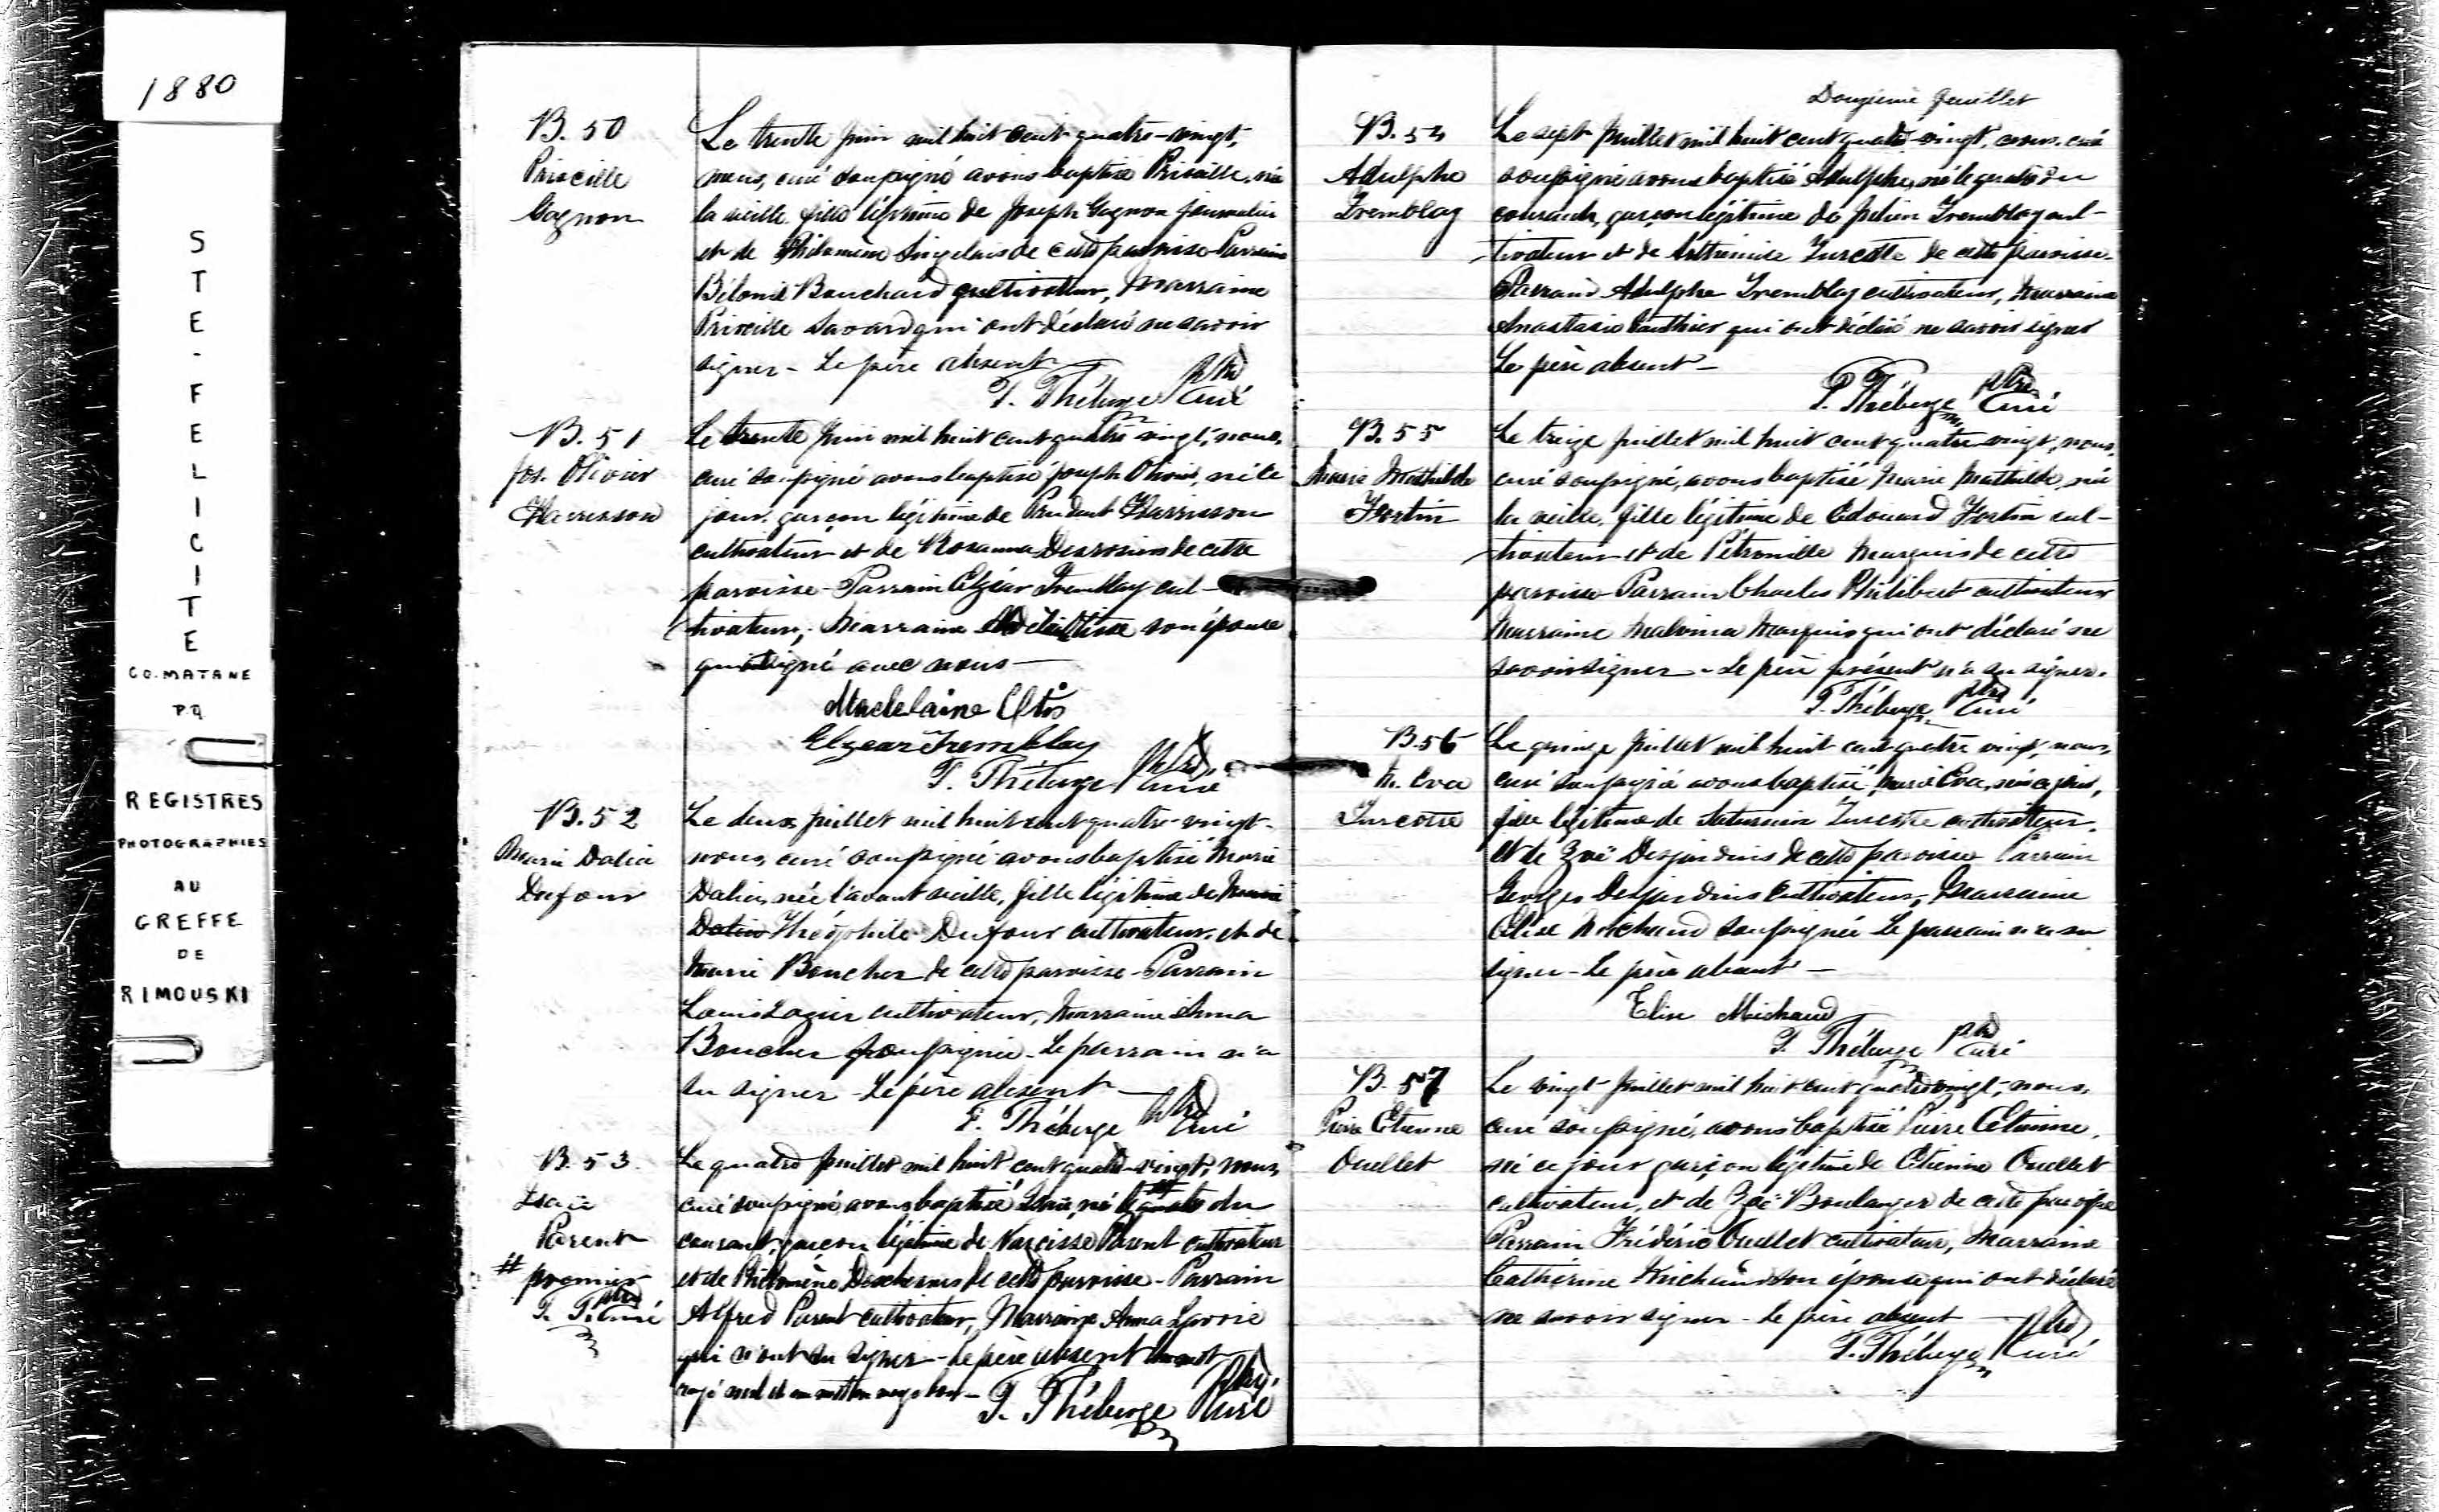 1880
STE-FELICITE
CO. MATANE
P.Q
REGISTRES
PHOTOGRAPHIES
AU
GREFFE
DE
RIMOUSKI
B. 50
Priscille
Gagnon
Le trente juin mil huit cent quatre-vingt,
nous, curé soussigné avons baptisé Priscille, née
la veille, fille légitime de Joseph Gagnon journalier
et de Philomène Singelais de cette paroisse - Parrain
Bélonie Bouchard cultivateur, Marraine
Priscille Savard qui ont déclaré ne savoir
signer - Le père absent
P. Théberge Ptre Curé
B. 51
Jos. Olivier
Harrisson
Le trente juin mil huit cent quatre-vingt, nous,
curé soussigné avons baptisé Joseph Olivier, né le
jour, garçon légitime de Prudent Harrisson
cultivateur et de Rosanna Desrosiers de cette
paroisse - Parrain Elzéar Tremblay cul-
tivateur, Marraine son épouse
qui ont signé avec nous -
Madelaine Otis
Elzear Tremblay
P. Théberge Ptre Curé
B. 52
Marie Dalia
Dufour
Le deux juillet mil huit cent quatre-vingt-
nous, curé soussigné avons baptisé Marie
Dalia, née l'avant veille, fille légitime de Marie
Dalia Théophile Dufour cultivateur, et de
Marie Boucher de cette paroisse - Parrain
Louis cultivateur, Marraine Anna
Boucher soussignée - Le parrain n'a
su signer - Le père absent -
P. Théberge Ptre Curé
B. 53
Isaïe
Parent
# premier
P. T. Ptre Curé
Le quatre juillet mil huit cent quatre-vingt, nous,
curé soussigné, avons baptisé Isaïe, né le # quatre du
courant, garçon légitime de Narcisse Parent cultivateur
et de Philomène Deschesnes de cette paroisse - Parrain
Alfred Parent cultivateur, Marraine Anna Lavoie
qui n'ont su signer - Le père absent Un mot
rayé nul et un en marge bon -
P. Théberge Ptre, Curé
Douzième feuillet
B. 54
Adulphe
Tremblay
Le sept juillet mil huit cent quatre-vingt, nous, curé
soussigné avons baptisé Adulphe, né le quatre du
courant, garçon légitime de Julien Tremblay cul-
tivateur et de Arthémise Turcotte de cette paroisse.
Parrain Adulphe Tremblay cultivateur, Marraine
Anastasie Gauthier qui ont déclaré ne savoir signer
Le père absent -
P. Théberge Ptre Curé
B. 55
Marie Mathilde
Fortin
Le treize juillet mil huit cent quatre-vingt, nous,
curé soussigné, avons baptisé Marie Mathilde, née
la veille, fille légitime de Edouard Fortin cul-
tivateur et de Pétronille Marquis de cette
paroisse - Parrain Charles Philibert cultivateur
Marraine Malvina Marquis qui ont déclaré ne
savoir signer - Le père présent n'a su signer.
P. Théberge Ptre Curé
B. 56
M. Eva
Turcotte
Le quinze juillet mil huit cent quatre vingt, nous,
curé soussigné avons baptisé, Marie Eva, née ce jour,
fille légitime de Saturnin Turcotte cultivateur,
et de Zoé Desjardins de cette paroisse Parrain
Georges Desjardins cultivateur, Marraine
Elise Michaud soussignée Le parrain n'a su
signer - Le père absent -
Elise Michaud
P. Théberge Ptre Curé
B. 57
Pierre Etienne
Ouellet
Le vingt juillet mil huit cent quatre-vingt, nous,
curé soussigné, avons baptisé Pierre Etienne,
né ce jour garçon légitime de Etienne Ouellet
cultivateur, et de Zoé Boulanger de cette paroisse
Parrain Frédéric Ouellet cultivateur, Marraine
Catherine Michaud son épouse qui ont déclaré
ne savoir signer - Le père absent -
P. Théberge Ptre Curé